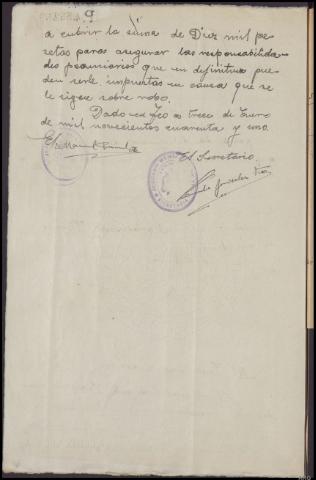 a cubrir la suma de Diez mil pe-
setas para asegurar las responsabilida-
des pecuniarias que en definitiva pue-
dan serle impuestas en causa que se
le sigue sobre robo.
Dado en a trece de Enero
de mil novecientos cuarenta y uno.
El Secretario.